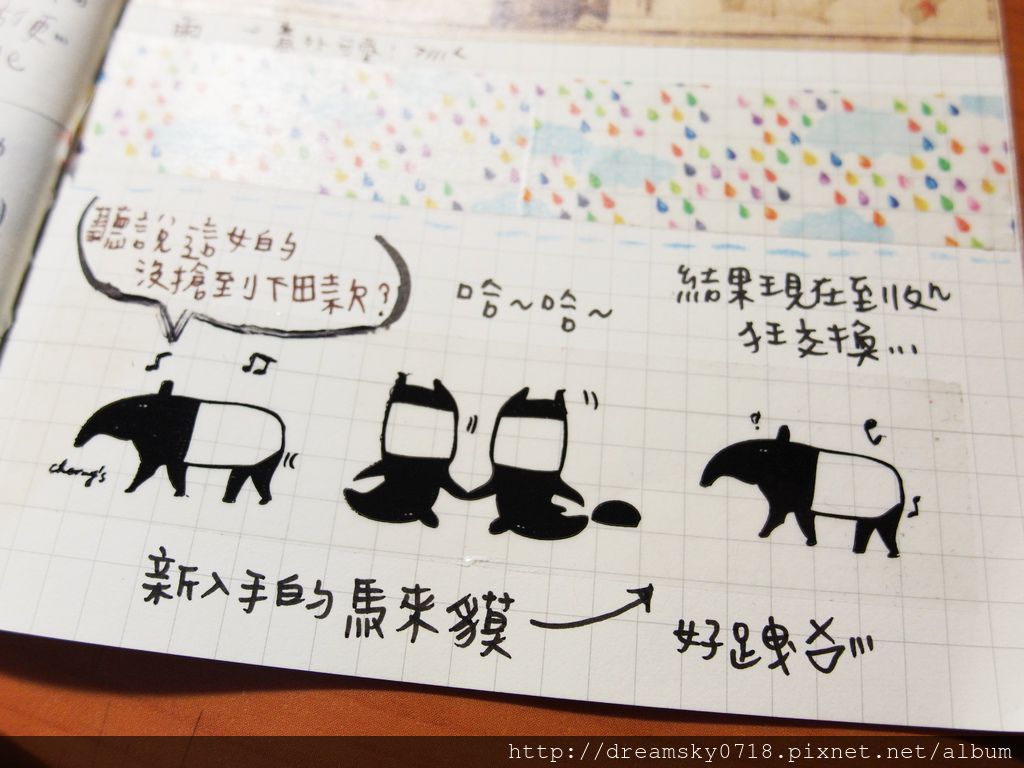 雨
聽說這女的
沒搶到下田款？
哈~哈~
結果現在到收~
狂交換...
cherng's
新入手的馬來貘
好跩
http://dreamsky0718.pixnet.net/album